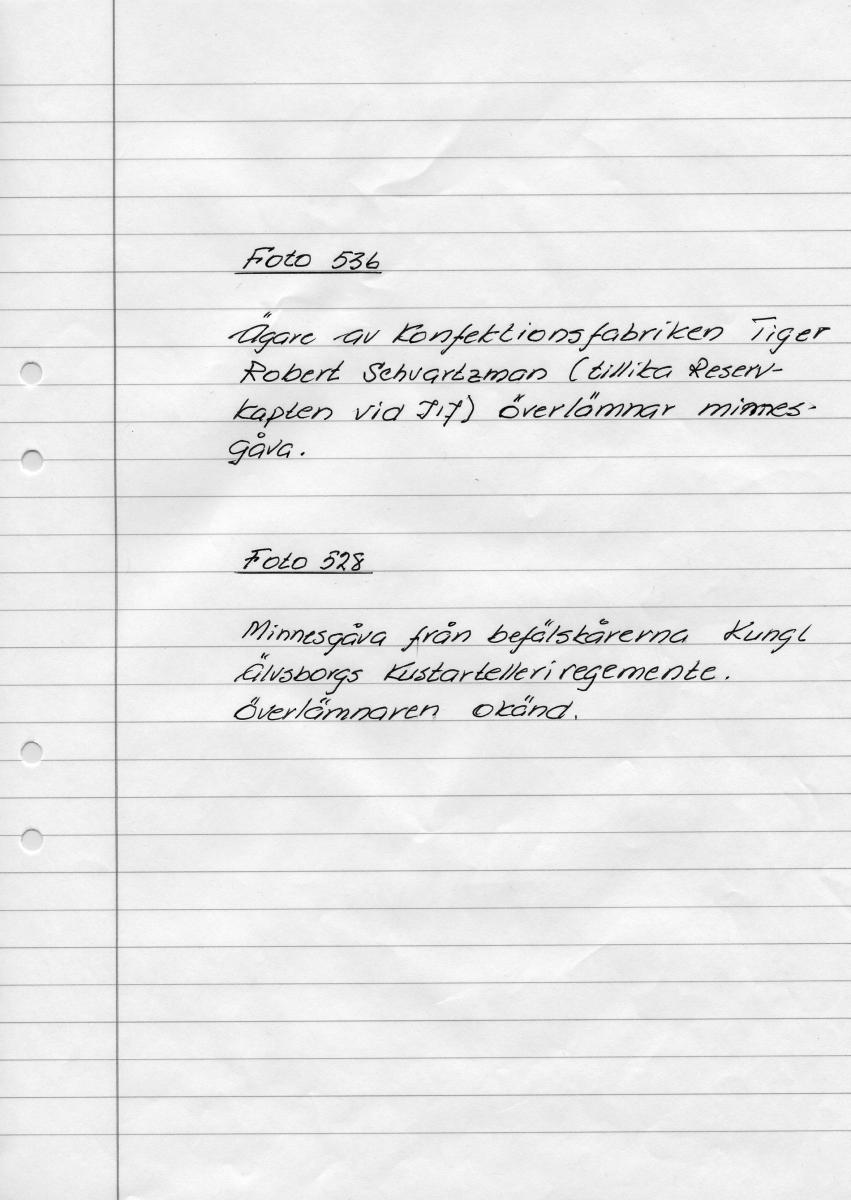 Foto 536
Ägare av Konfektionsfabriken Tiger
Robert Schvartzman (tillika Reserv-
kapten vid I17) överlämnar minnes-
gåva.
Foto 528
Minnesgåva från befälskårerna Kungl
Älvsborgs Kustartelleriregemente.
Överlämnaren okänd.